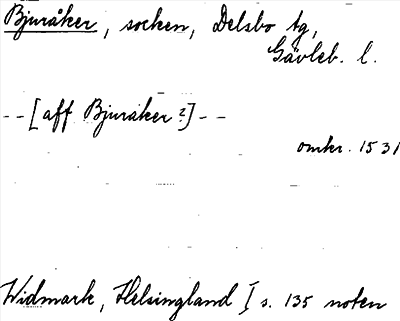 Bjuråker, socken, Delsbo tg,
Gävleb. l.
--[aff Bjuraker?]--
omkr. 1531
Widmark, Helsingland I s. 135 noten